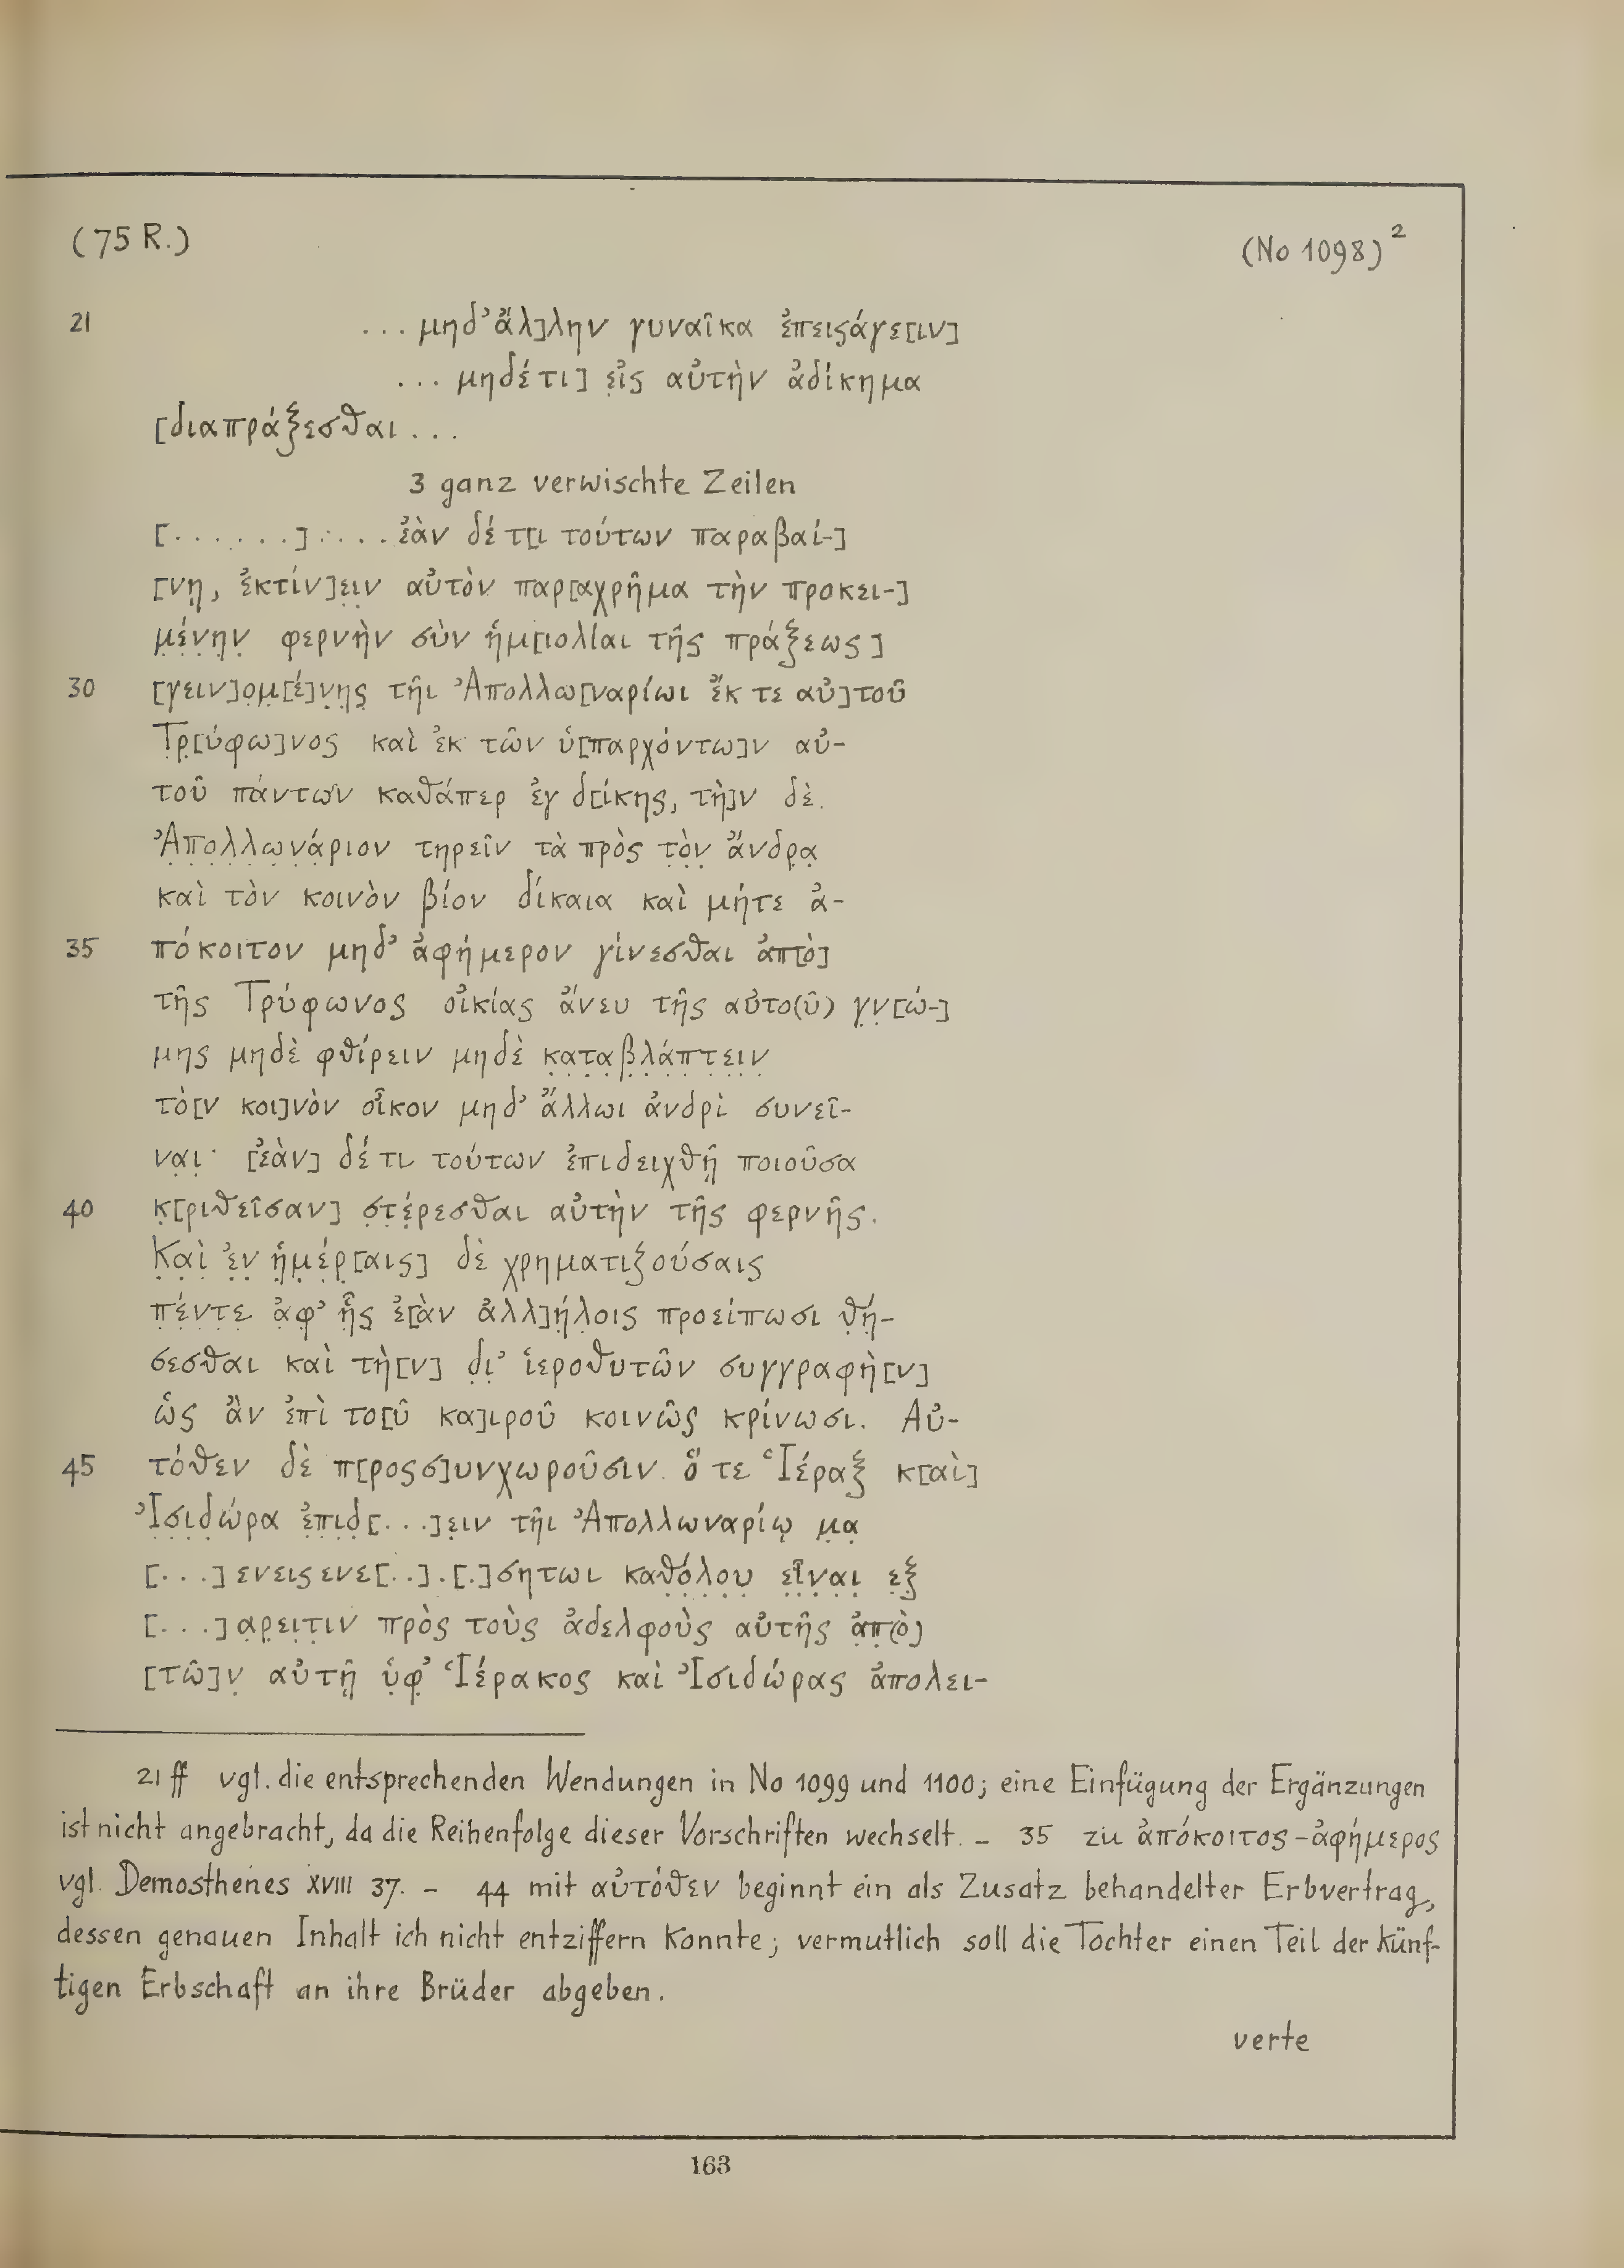 (75 R.) (No 1098)²
21 ... μηδ' ἄλ]λην γυναῖκα ἐπειςάγε[ιν]
... μηδέ τι] ε̣ἰς αὐτὴν ἀδίκημα
[διαπράξεσθαι ...
3 ganz verwischte Zeilen
[.......] .... ἐὰν δέ τ[ι τούτων παραβαί-]
[νῃ, ἐκτίν]ε̣ι̣ν αὐτὸν παρ[αχρῆμα τὴν προκει-]
μ̣έ̣ν̣η̣ν̣ φερνὴν σὺν ἡμ[ιολίαι τῆς πράξεως]
30 [γειν]ο̣μ̣[έ]ν̣η̣ς̣ τῆι Ἀπολλω[ναρίωι ἔκ τε αὐ]τοῦ
Τ̣ρ̣[ύφω]νος καὶ ἐκ τῶν ὑ[παρχόντω]ν αὐ-
τοῦ πάντων καθάπερ ἐγ δ[ίκης, τὴ]ν δὲ
Ἀ̣π̣ο̣λ̣λ̣ω̣ν̣ά̣ριον τηρεῖν τὰ πρὸς τ̣ὸ̣ν̣ ἄνδρ̣α̣
καὶ τὸν κοινὸν βίον δίκαια καὶ μήτε ἀ-
35 πόκοιτον μηδ' ἀφήμερον γίνεσθαι ἀπ[ὸ]
τῆς Τρύφωνος οἰκίας ἄνευ τῆς αὐτο(ῦ) γ̣ν̣[ώ-]
μης μηδὲ φθίρειν μηδὲ κ̣α̣τ̣α̣β̣λ̣ά̣π̣τ̣ε̣ι̣ν̣
τὸ[ν κοι]νὸν οἶκον μηδ' ἄλλωι ἀνδρὶ συνεῖ-
να̣ι̣· [ἐὰν] δέ τι τούτων ἐπιδειχθῇ ποιοῦσα
40 κ̣[ριθεῖσαν] σ̣τ̣έ̣ρεσθαι αὐτὴν τῆς φερνῆς.
Κ̣α̣ὶ̣ ἐ̣ν̣ ἡ̣μ̣έ̣ρ̣[αις] δὲ χρηματιζούσαις
π̣έ̣ν̣τ̣ε̣ ἀ̣φ̣' ἧς̣ ἐ[ὰν ἀλλ]ή̣λ̣οις προείπωσι θ̣ή̣-
σεσθαι καὶ τὴ[ν] δ̣ι̣' ἱεροθυτῶν συγγραφὴ[ν]
ὡς ἂν ἐπὶ το[ῦ κα]ιροῦ κοινῶς κρίνωσι. Αὐ-
45 τόθεν δὲ π[ροςσ]υνχωροῦσιν ὅ τε Ἱέραξ κ[αὶ]
Ἰ̣σ̣ι̣δ̣ώ̣ρα ἐ̣π̣ι̣δ̣[...]ε̣ιν τῆι Ἀπολλωναρίῳ μ̣α̣
[...] ενειςενε[..].[.]σητωι καθ̣ό̣λ̣ο̣υ̣ ε̣ἶ̣ν̣α̣ι̣ ε̣ξ̣
[...]α̣ρ̣ε̣ι̣τ̣ιν πρὸς τοὺς ἀδελφοὺς αὐτῆς ἀ̣π̣(ὸ)
[τῶ]ν̣ αὐτῇ ὑ̣φ̣' Ἱέρακος καὶ Ἰσιδώρας ἀπολει-
21 ff vgl. die entsprechenden Wendungen in No 1099 und 1100; eine Einfügung der Ergänzungen
ist nicht angebracht, da die Reihenfolge dieser Vorschriften wechselt. – 35 zu ἀπόκοιτος – ἀφήμερος
vgl. Demosthenes XVIII 37. – 44 mit αὐτόθεν beginnt ein als Zusatz behandelter Erbvertrag,
dessen genauen Inhalt ich nicht entziffern konnte; vermutlich soll die Tochter einen Teil der künf-
tigen Erbschaft an ihre Brüder abgeben.
verte
163